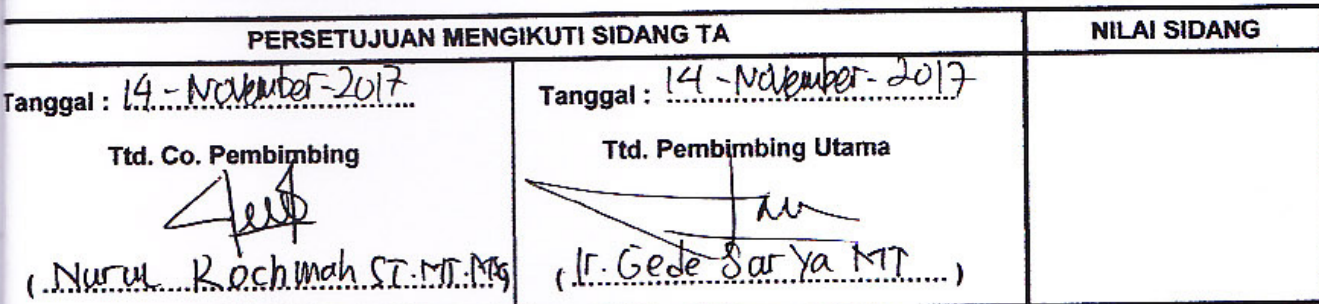 PERSETUJUAN MENGIKUTI SIDANG TA
NILAI SIDANG
Tanggal : 14 - November - 2017
Ttd. Co. Pembimbing
( Nurul Rochmah ST. MT. 
Tanggal : 14 - November - 2017
Ttd. Pembimbing Utama
( Ir. Gede Sar Ya MT )